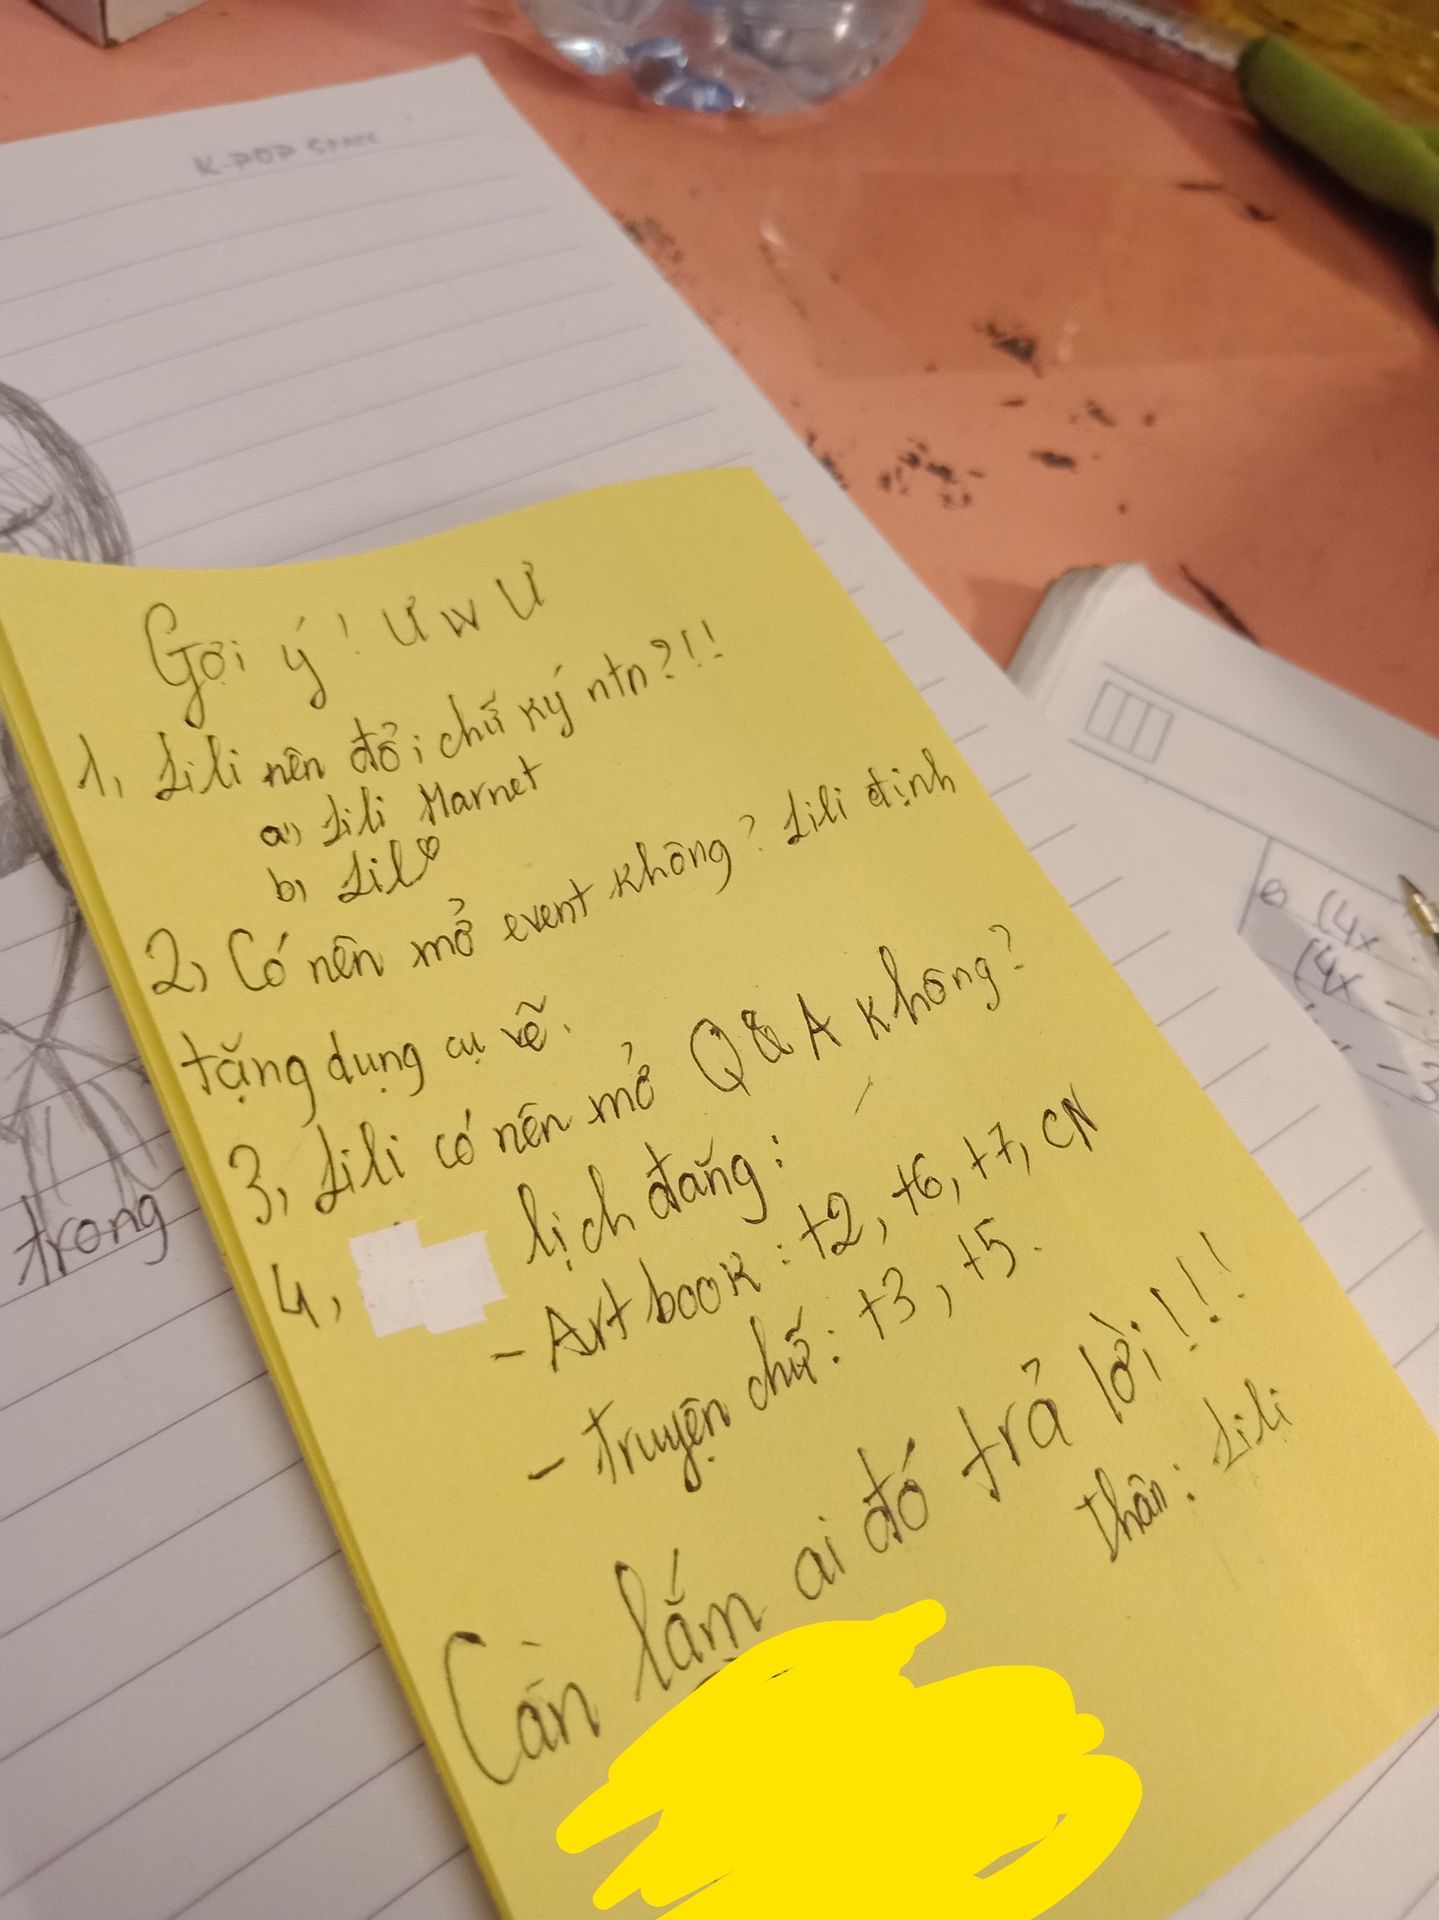 K-POP
Gợi ý! ƯwƯ
1, Lili nên đổi chữ ký ntn?!!
a, Lili Marnet
b, Lil♡
2, Có nên mở event không? Lili định
tặng dụng cụ vẽ.
3, Lili có nên mở Q&A không?
4, lịch đăng:
- Art book: t2, t6, t7, CN
- Truyện chữ: t3, t5.
Cần lắm ai đó trả lời!!!
Thân: Lili
trong
(4x
(4x